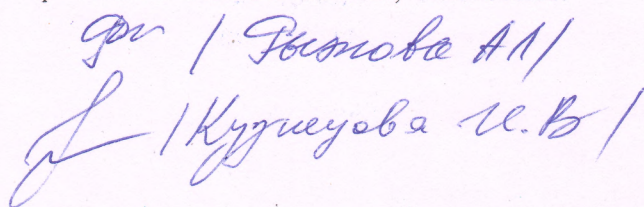 / Рыжова АЛ/
/Кузнецова И.В/